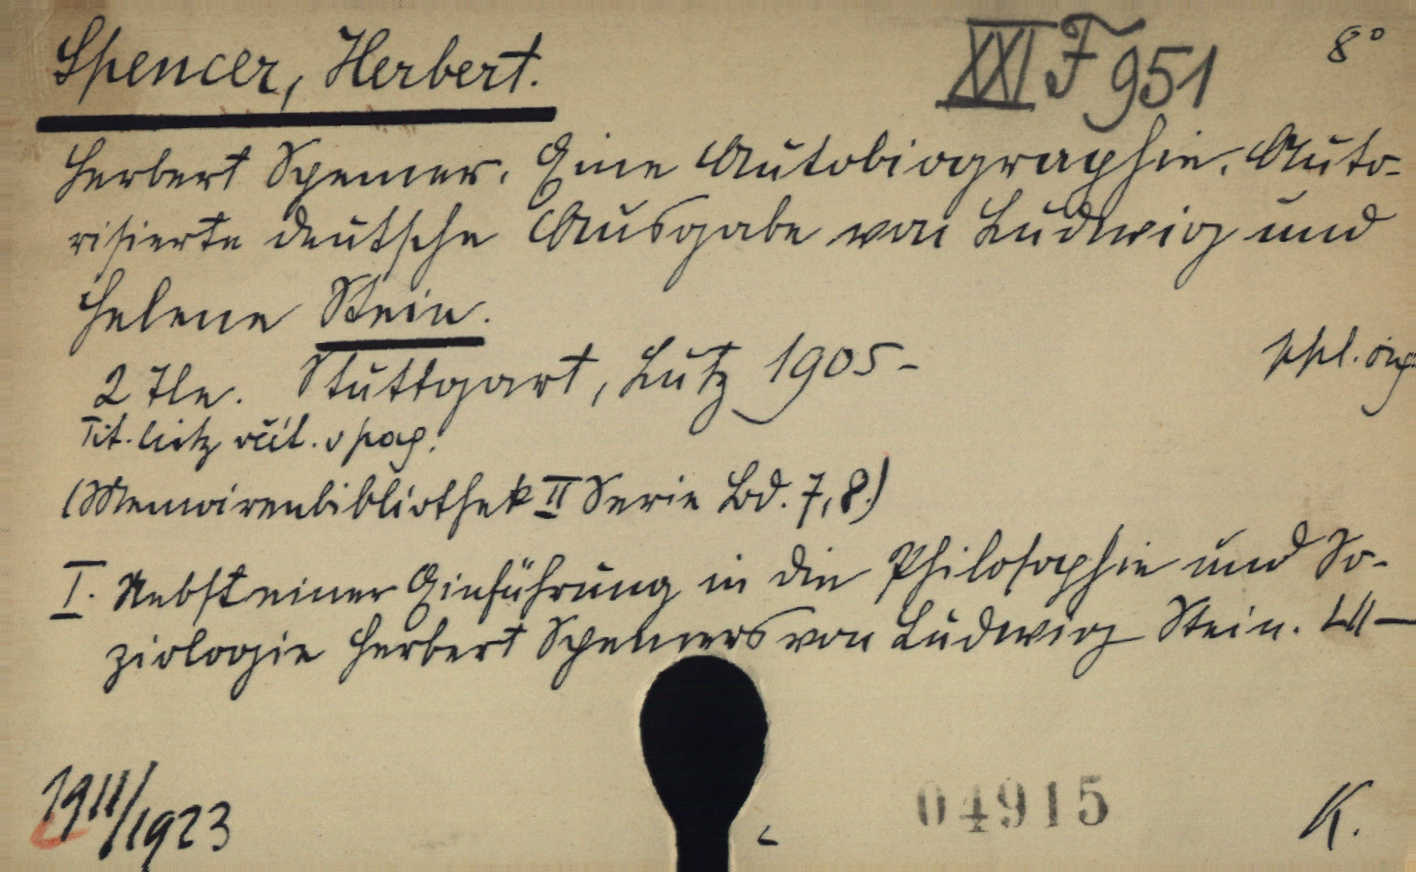 Spencer, Herbert.
XXI F 951
8°
Herbert Spencer. Eine Autobiographie. Auto-
risierte deutsche Ausgabe von Ludwig und
Helene Stein.
2 Tle. Stuttgart, Lutz 1905-
ppl. orig.
Tit.
(Memoirenbibliothek II Serie Bd. 7, 8.)
I. Nebst einer Einführung in die Philosophie und So-
ziologie Herbert Spencers von Ludwig Stein.
1911/1923
04915
K.